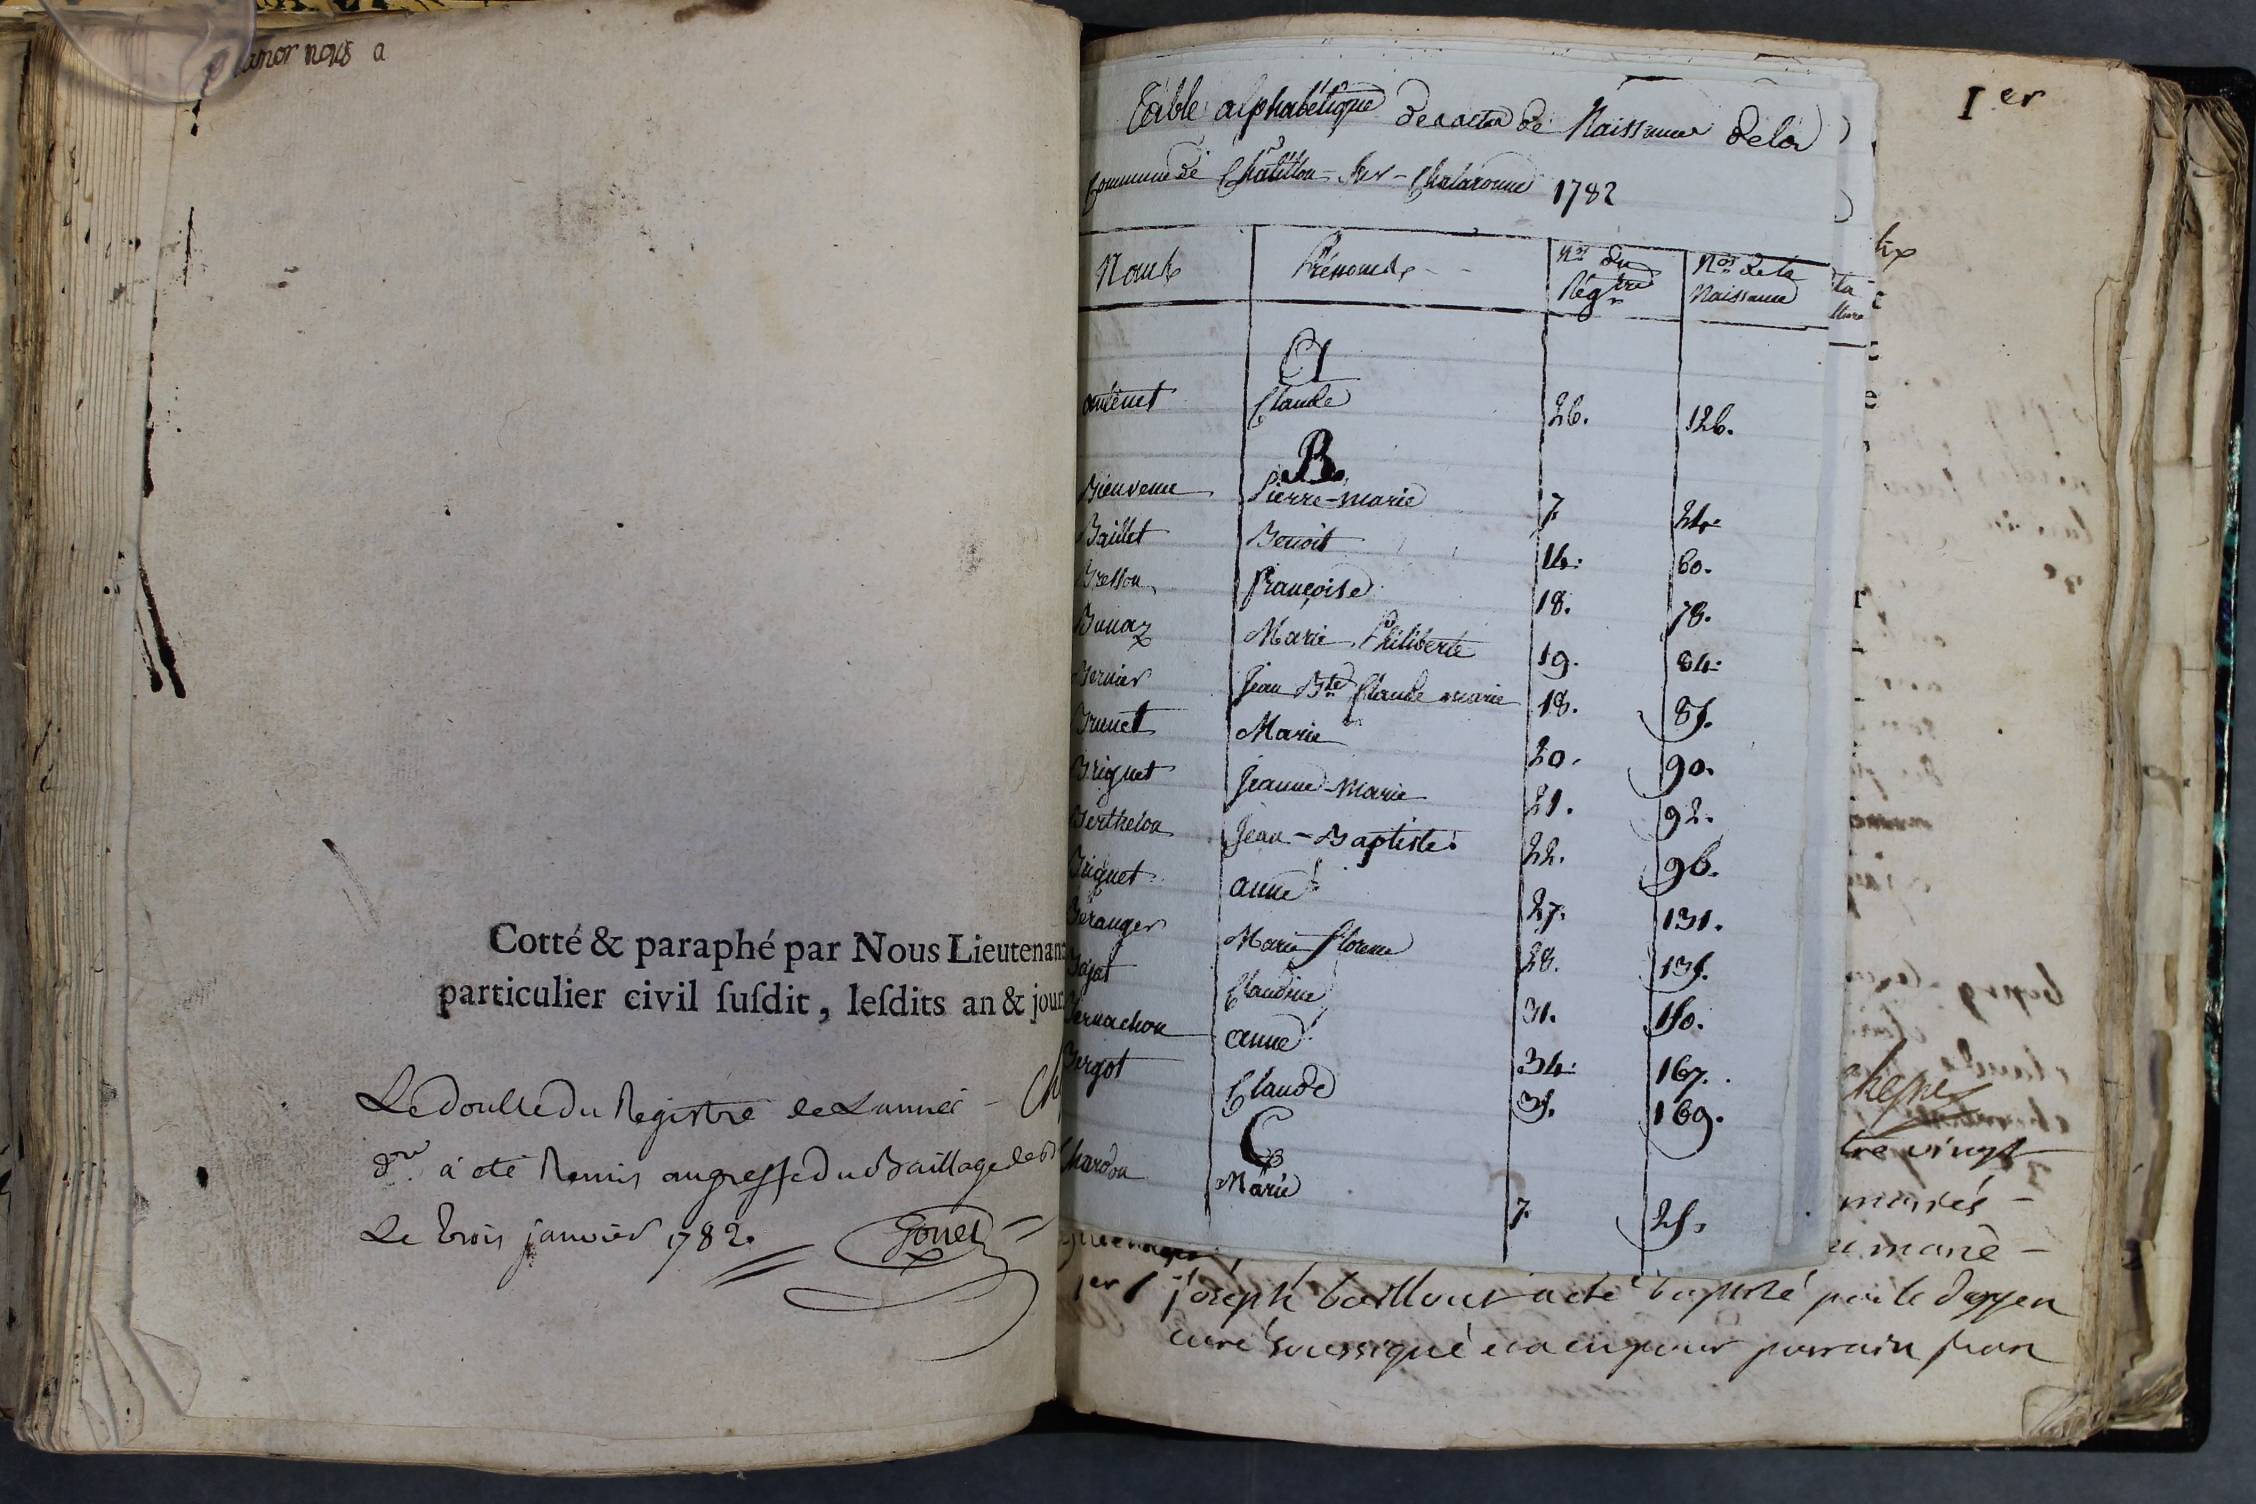 nous a
Cotté & paraphé par Nous Lieutenan
particulier civil ſuſdit, leſdits an & jour
Le double du Registre de L'année -
d.re a été Remis au greffe du Baillage de
Le trois janvier 1782.
Gonet
Table alphabétique des actes de Naissance de la
Commune de Châtillon-sur-Chalaronne 1782
Noms Prénoms N.os du Régtre N.os de la Naissance
A
antenet Claude 26. 126.
B.
Bienvenu Pierre-marie 7. 24.
Baillet Benoit 14. 60.
Bresson Françoise 18. 78.
Bunaz Marie Philiberte 19. 84.
Bernier Jean Bte Claude marie 18. 85.
Brunet Marie 20. 90.
Briguet Jeanne-Marie 21. 92.
Berthelon Jean-Baptiste 22. 96.
Briguet anne 27. 131.
Béranger Marie florence 28. 135.
Bajat Claudine 31. 150.
Bernachon anne 34. 167.
Bergot Claude 35. 169.
C
Chardon Marie 7. 25.
1er
tre vingt
mariés -
joseph a été baptisé par le doyen
curé soussigné parrain